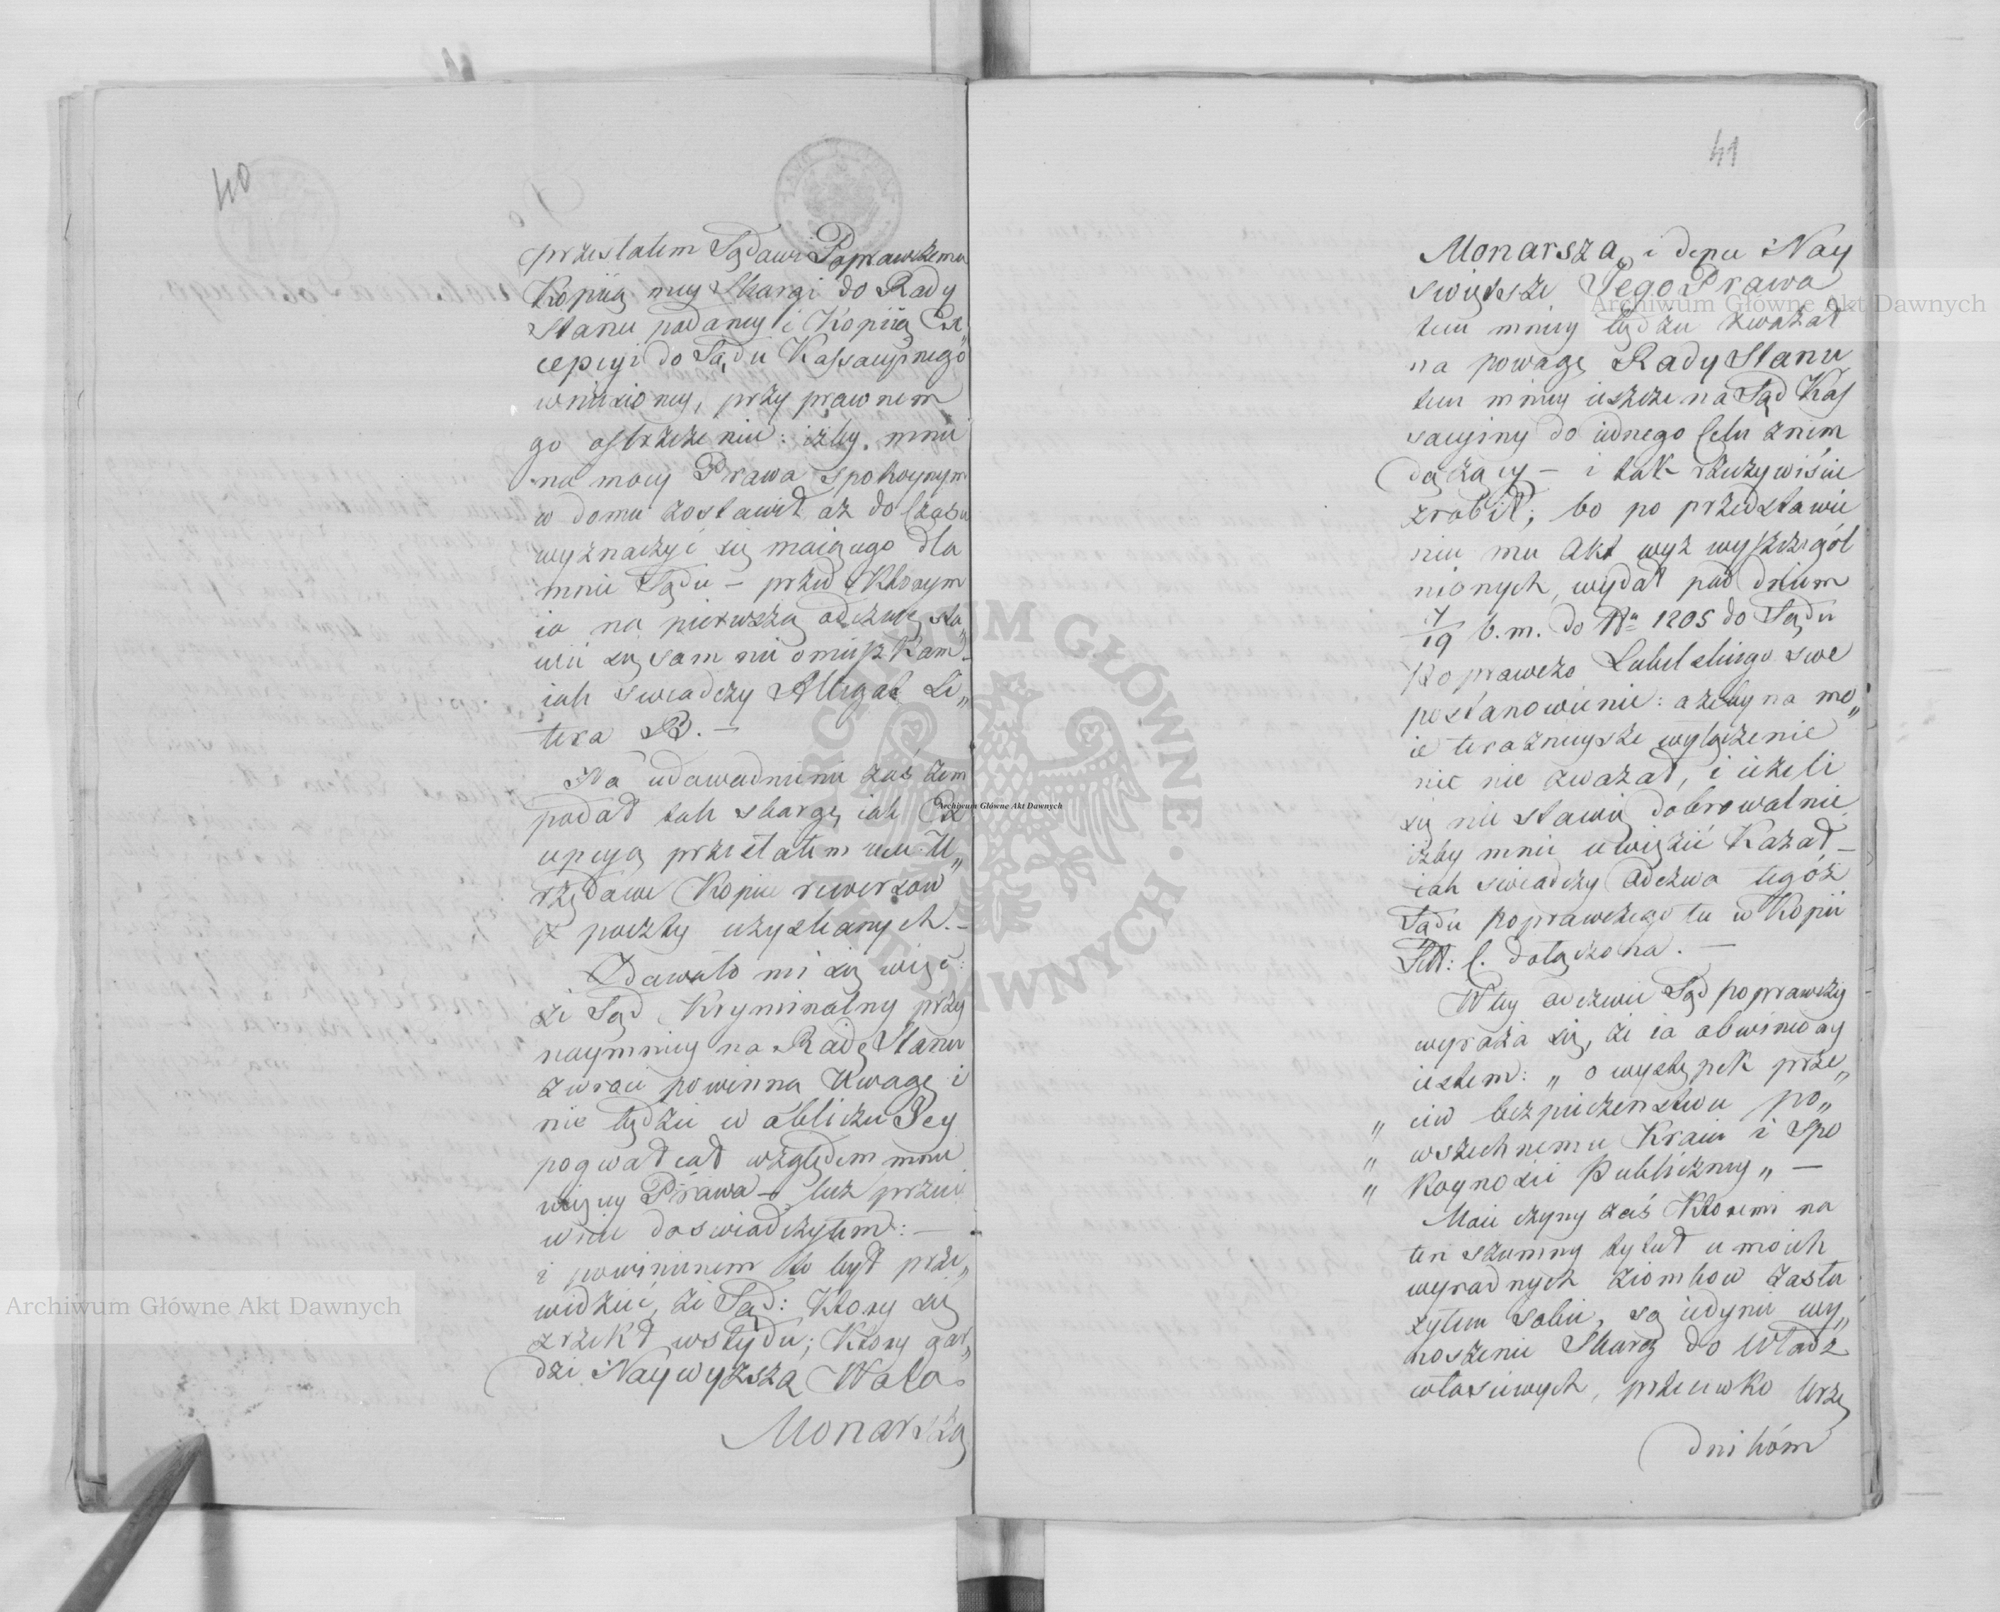 40
przesłałem Sądowi Poprawczemu
Kopiią mey Skargi do Rady
Stanu podaney i Kopiią Ex„
cepcyi do Sądu Kassacyjnego
wniesioney, przy prawnem
go ostrzeżeniu: iżby mnie
na mocy Prawa spokoynym
w domu zostawił aż do Czasu
wyznaczyć się maiącego dla
mnie Sądu – przed Którym
ia na pierwszą odezwę sta„
wić się sam nie omieszkam –
iak swiadczy Allegat Li„
tera B. –
Na udowodnienie zaś żem
podał tak skargę iak Ex
cepcyą przesłałem U„
rzędowe Kopie rewersow
z poczty uzyskanych. –
Zdawało mi się więc:
że Sąd Kryminalny przy
naymniey na Radę Stanu
zwróci powinną Uwagę i
nie będzie w obliczu Jey
pogwałcał względem mnie
więcey Prawa – lecz przeci
wnie doswiadczyłem: –
i powinienem to był prze„
widzieć, że Sąd: Ktory się
zrzekł wstydu; Ktory gar„
dzi Naywyższą Wolą
Monarszą
41
Monarszą i depce Nay
swiętsze Jego Prawa
tem mniey będzie zważał
na powagę Rady Stanu
tem mniey ieszcze na Sąd Kas
sacyjny do iednego Celu z nim
dążący – i tak rzeczywiście
zrobił; bo po przedstawie
niu mu Akt wyż wyszczegól
nionych, wydał pod dniem
7/19 b. m. do Nru 1205 do Sądu
Poprawczo Lubelskiego swe
postanowienie: ażeby na mo„
ie teraznieysze wyłączenie
nic nie zważał, i ieżeli
się nie stawię dobrowolnie
iżby mnie uwięzić Kazał –
iak świadczy Odezwa tegóż
Sądu poprawczego tu w Kopii
Litt: C. dołączona. –
W tey odezwie Sąd poprawczy
wyraża się, że ia obwiniony
iestem: „ o występek prze„
„ ciw bezpieczenstwu po„
„ wszechnemu Kraiu i Spo
„ koyności Publiczney „ –
Moie czyny zaś Któremi na
ten szumny tytuł u moich
wyrodnych ziomkow zasłu
żyłem sobie, są iedynie wy„
noszenie Skarg do Władz
własciwych, przeciwko Urzę
dnikóm
Archiwum Główne Akt Dawnych
Archiwum Główne Akt Dawnych
Archiwum Główne Akt Dawnych
ARCHIWUM GŁÓWNE · AKT DAWNYCH ·